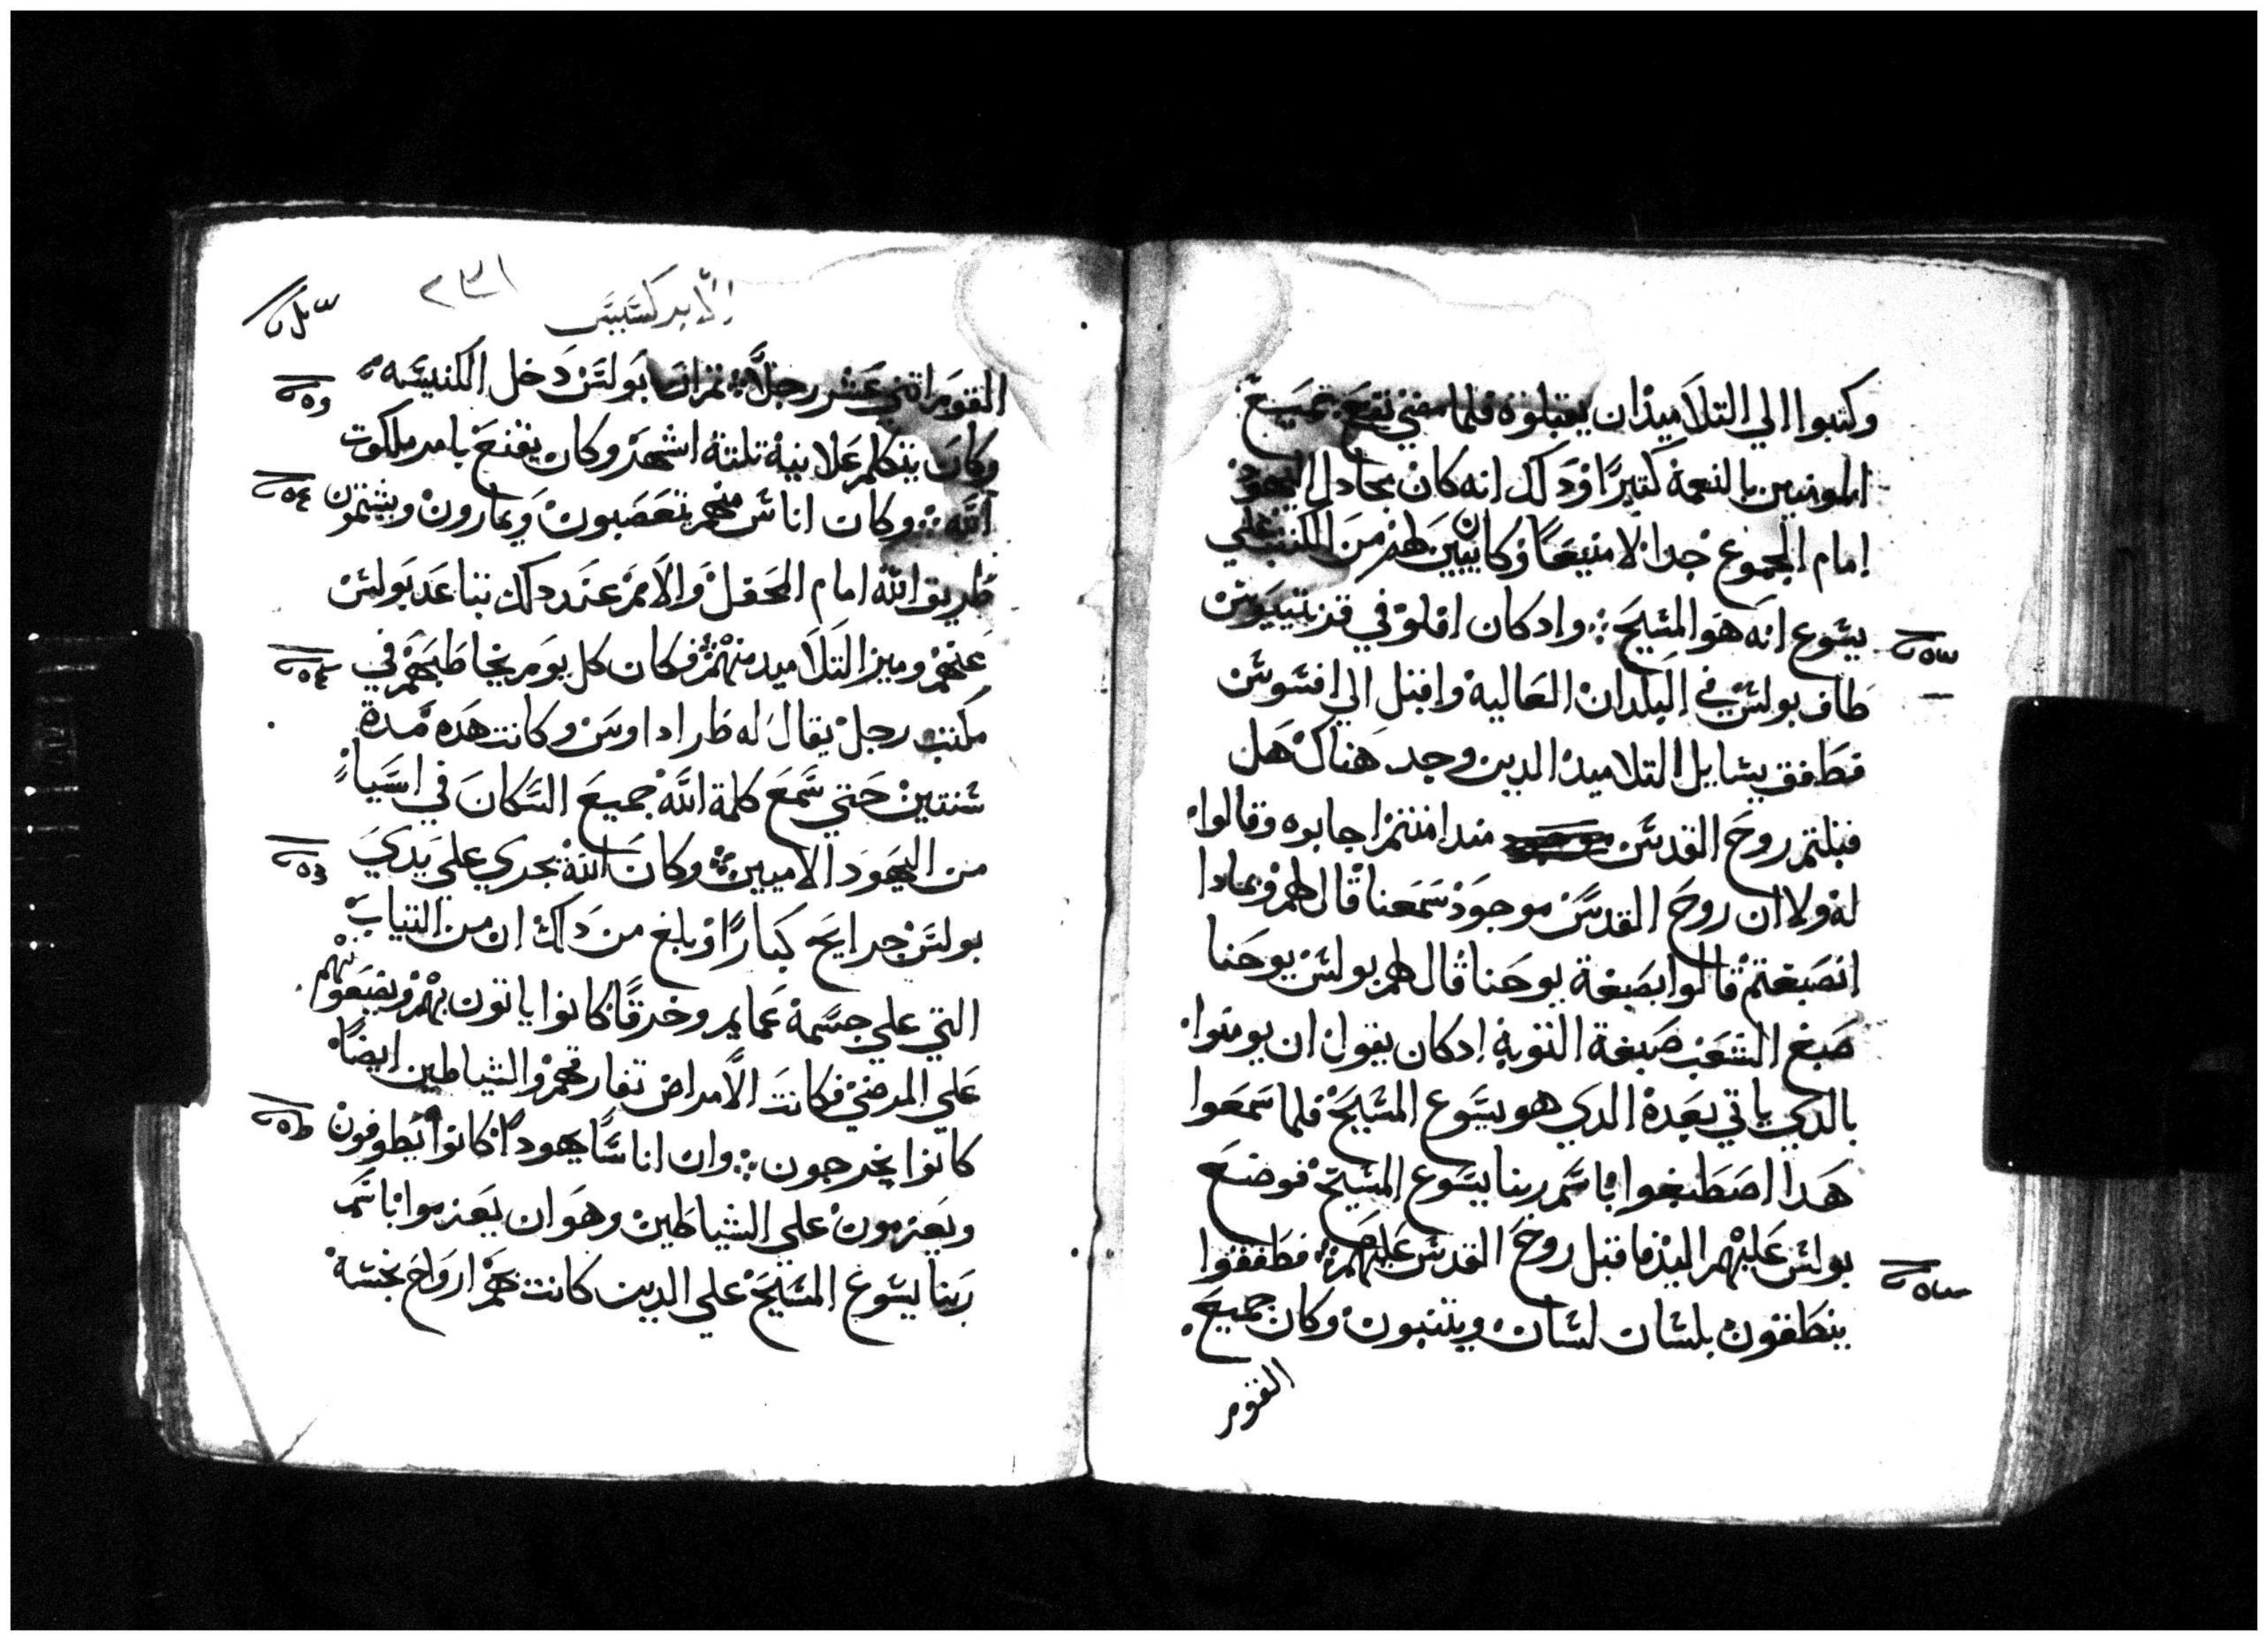 وكتبوا الي التلاميذ ان يقتبلوه فلما مضي نفع جميع
المومنين بالنعمة كتيرًا ودلك انه كان يجادل اليهود
امام الجموع جدالا منيعًا وكان يبين لهم من الكتب علي
يسوع انه هو المسيح واد كان افلو في قرنتيوس
طاف بولس في البلدان العالية واقبل الي افسوس
فطفق يسايل التلاميد الدين وجد هناك هل
قبلتم روح القدس مند امنتم اجابوه وقالوا
له ولا ان روح القدس موجود سمعنا قال لهم وبمادا
انصبغتم قالوا بصبغة يوحنا قال لهم بولس يوحنا
صبغ الشعب صبغة التوبة ادكان يقول ان يومنوا
بالدي ياتي بعده الدي هو يسوع المسيح فلما سمعوا
هدا اصطبغوا باسم ربنا يسوع المسيح فوضع
بولس عليهم اليد فاقبل روح القدس عليهم فطفقوا
ينطقون بلسان لسان ويتنبون وكان جميع
القوم
الابركسيس
٢٣١
القوم اثني عشر رجلاً ثم ان بولس دخل الكنيسه
وكان يتكلم علانية تلتة اشهر وكان يقنع بامر ملكوت
الله وكان اناس منهم يتعصبون ويمارون ويشتمون
طريق الله امام المحفل والامم عند دلك تباعد بولس
عنهم وميز التلاميد منهم فكان كل يوم يخاطبهم في
مكتب رجل يقال له طرادوس وكانت هده مدة
سنتين حتي سمع كلمة الله جميع السكان في اسيا
من اليهود الاميين وكان الله يجري علي يدي
بولس جرايح كبارًا وبلغ من دلك ان من التياب
التي علي جسمه عمايم وخرقًا كانوا ياتون بهم ويضعونهم
علي المرضي فكانت الامراض تفارقهم والشياطين ايضًا
كانوا يخرجون وان اناسًا يهودًا كانوا يطوفون
ويعزمون علي الشياطين وهو ان يعزموا باسم
ربنا يسوع المسيح علي الدين كانت بهم ارواح نجسة